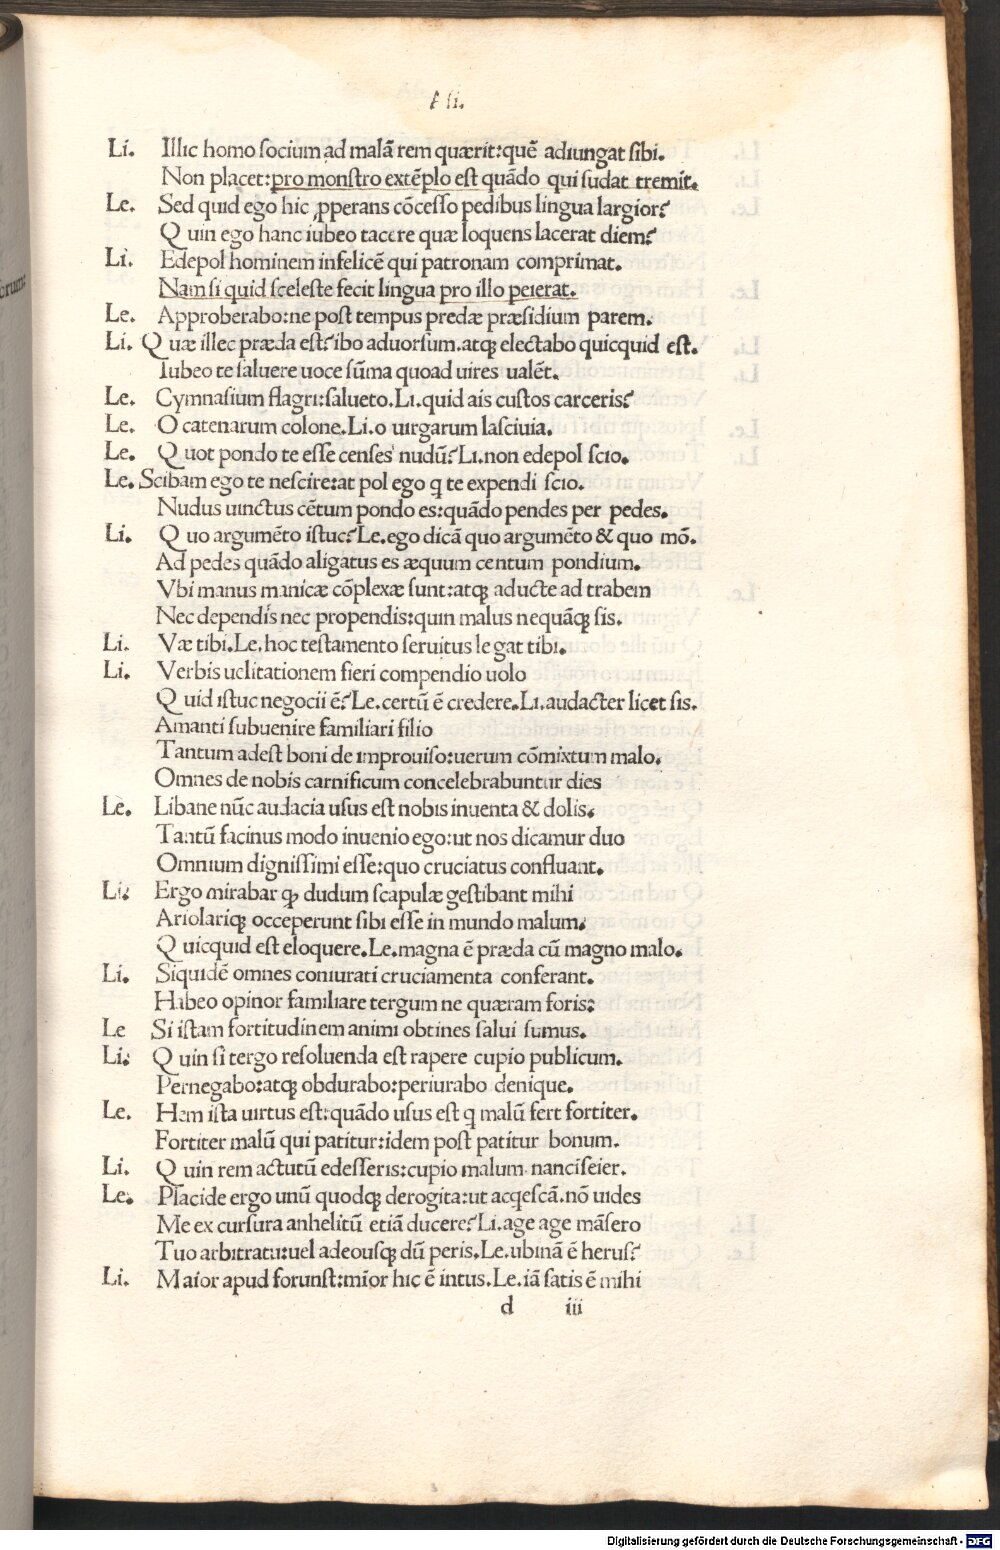 Asi.
Li. Illic homo socium ad malā rem quærit:quē adiungat sibi.
Non placet:pro monstro extēplo est quādo qui sudat tremit.
Le. Sed quid ego hic ꝓperans cōcesso pedibus lingua largior?
Quin ego hanc iubeo tacere quæ loquens lacerat diem?
Li. Edepol hominem infelicē qui patronam comprimat.
Nam si quid sceleste fecit lingua pro illo peierat.
Le. Approberabo:ne post tempus predæ præsidium parem.
Li. Quæ illec præda est?ibo aduorsum.atqꝫ electabo quicquid est.
Iubeo te saluere uoce sūma quoad uires ualēt.
Le. Gymnasium flagri:salueto.Li.quid ais custos carceris?
Le. O catenarum colone.Li.o uirgarum lasciuia.
Le. Quot pondo te esse censes nudū?Li.non edepol scio.
Le. Scibam ego te nescire:at pol ego q te expendi scio.
Nudus uinctus cētum pondo es:quādo pendes per pedes.
Li. Quo argumēto istuc?Le.ego dicā quo argumēto & quo mō.
Ad pedes quādo aligatus es æquum centum pondium.
Vbi manus manicæ cōplexæ sunt:atqꝫ aducte ad trabem
Nec dependis nec propendis:quin malus nequāqꝫ sis.
Li. Væ tibi.Le.hoc testamento seruitus legat tibi.
Li. Verbis uelitationem fieri compendio uolo
Quid istuc negocii ē?Le.certū ē credere.Li.audacter licet sis.
Amanti subuenire familiari filio
Tantum adest boni de improuiso:uerum cōmixtum malo.
Omnes de nobis carnificum concelebrabuntur dies
Le. Libane nūc audacia usus est nobis inuenta & dolis.
Tantū facinus modo inuenio ego:ut nos dicamur duo
Omnium dignissimi esse:quo cruciatus confluant.
Li. Ergo mirabar qꝫ dudum scapulæ gestibant mihi
Ariolariqꝫ occeperunt sibi esse in mundo malum.
Quicquid est eloquere.Le.magna ē præda cū magno malo.
Li. Siquidē omnes coniurati cruciamenta conferant.
Habeo opinor familiare tergum ne quæram foris:
Le Si istam fortitudinem animi obtines salui sumus.
Li: Quin si tergo resoluenda est rapere cupio publicum.
Pernegabo:atqꝫ obdurabo:periurabo denique.
Le. Hem ista uirtus est:quādo usus est q malū fert fortiter.
Fortiter malū qui patitur:idem post patitur bonum.
Li. Quin rem actutū edesseris:cupio malum nanciseier.
Le. Placide ergo unū quodqꝫ derogita:ut acqescā.nō uides
Me ex cursura anhelitū etiā ducere?Li.age age māsero
Tuo arbitratu:uel adeousqꝫ dū peris.Le.ubinā ē herus?
Li. Maior apud forunst:mīor hic ē intus.Le.iā satis ē mihi
d iii
Digitalisierung gefördert durch die Deutsche Forschungsgemeinschaft - DFG